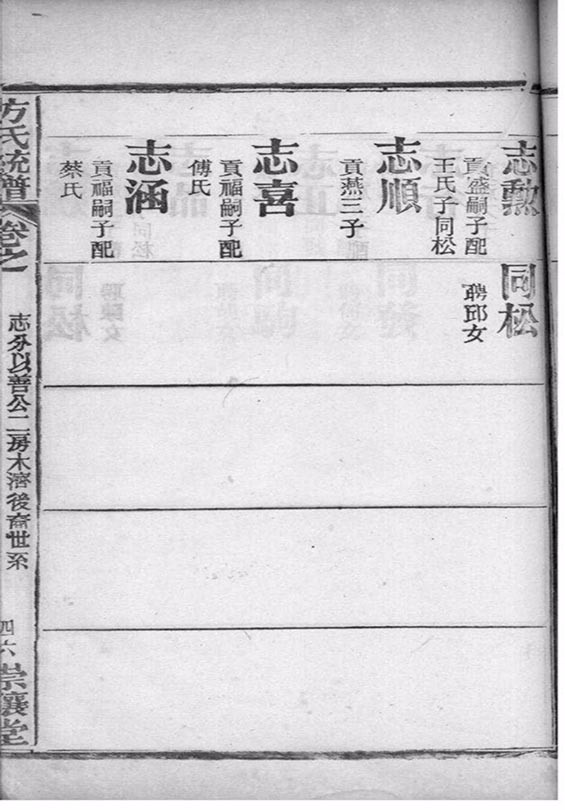 志勲
貢盛嗣子配
王氏子同松
同松
聘邱女
志順
貢燕三子
志喜
貢福嗣子配
傅氏
志涵
貢福嗣子配
蔡氏
方氏統譜
卷之
志分以善公二房木濟後裔世系
四六
崇讓堂